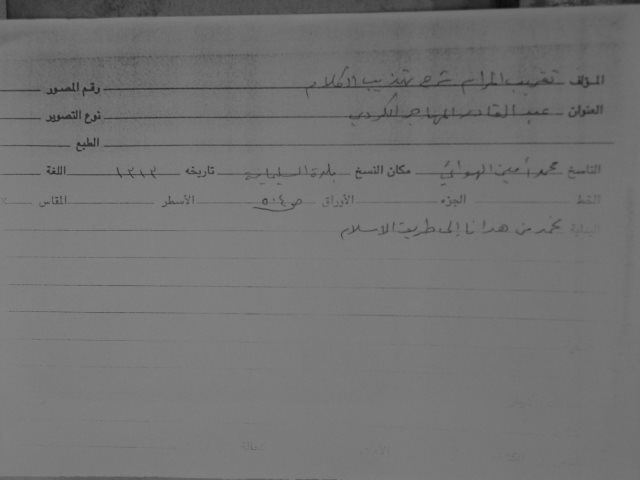 المؤلف تقريب المرام شرح تهذيب الكلام رقم المصور
العنوان عبد القادر المهاجر الكردي نوع التصوير
الطبع
الناسخ محمد أمين الهوائي مكان النسخ بلدة السليمانية تاريخه ١٣١٣ اللغة
الخط الجزء الأوراق ص ٥٠٤ الأسطر المقاس
البداية نحمد من هدانا إلى طريق الاسلام